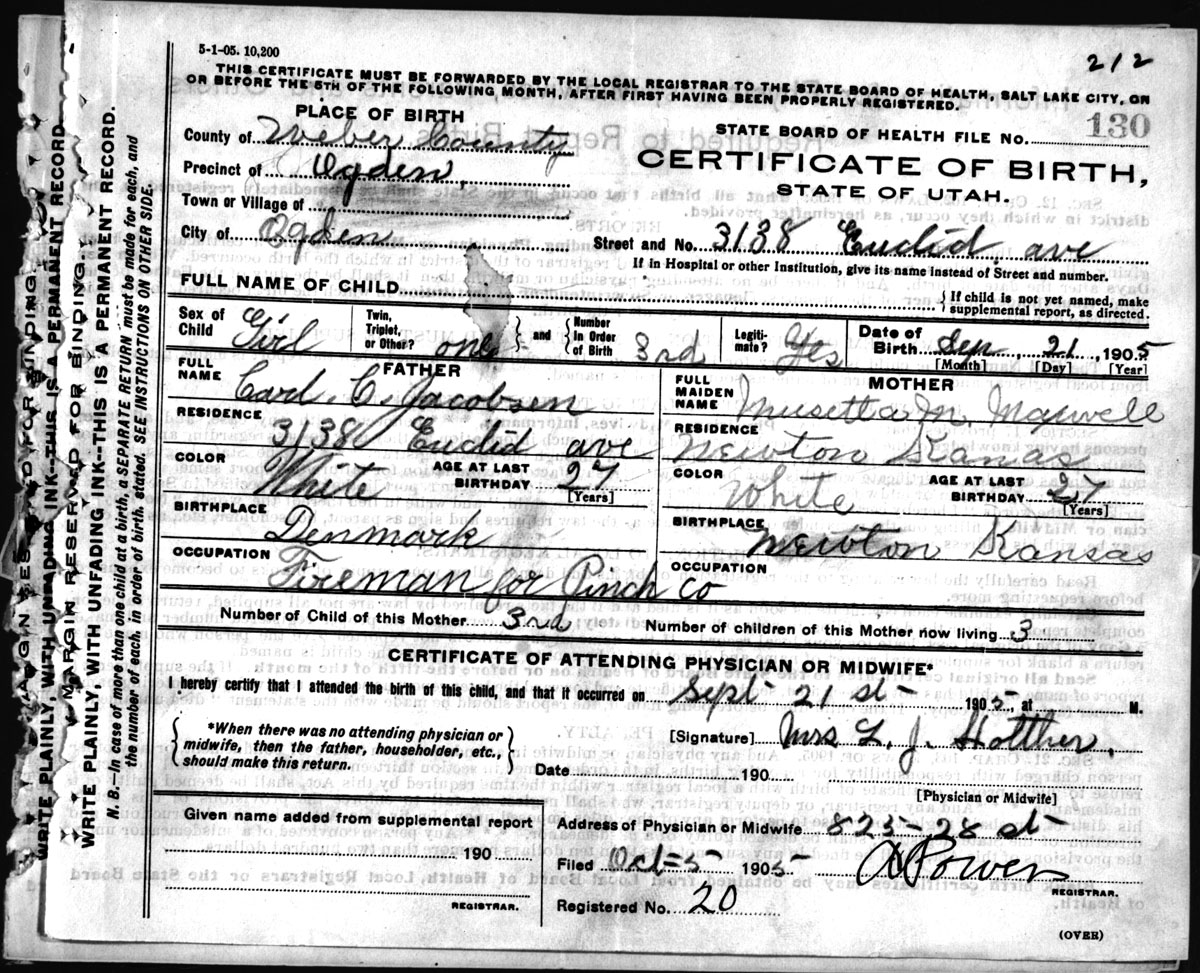 5-1-05. 10,200
212
THIS CERTIFICATE MUST BE FORWARDED BY THE LOCAL REGISTRAR TO THE STATE BOARD OF HEALTH, SALT LAKE CITY, ON
OR BEFORE THE 5TH OF THE FOLLOWING MONTH, AFTER FIRST HAVING BEEN PROPERLY REGISTERED.
PLACE OF BIRTH
STATE BOARD OF HEALTH FILE No. 130
County of Weber County
CERTIFICATE OF BIRTH,
Precinct of Ogden,
STATE OF UTAH.
Town or Village of
City of Ogden Street and No. 3138 Euclid ave
If in Hospital or other Institution, give its name instead of Street and number.
FULL NAME OF CHILD
{ If child is not yet named, make
supplemental report, as directed.
Sex of Child Girl
Twin, Triplet, or Other? one } and { Number In Order of Birth 3rd
Legiti-mate? Yes
Date of Birth Sep, 21, 1905
[Month] [Day] [Year]
FATHER
FULL NAME Carl C. Jacobsen
RESIDENCE 3138 Euclid ave
COLOR White AGE AT LAST BIRTHDAY 27
[Years]
BIRTHPLACE Denmark
OCCUPATION Fireman for Pinch Co
MOTHER
FULL MAIDEN NAME Musetta M. Maxwell
RESIDENCE Newton Kanas
COLOR White AGE AT LAST BIRTHDAY 27
[Years]
BIRTHPLACE Newton Kansas
OCCUPATION
Number of Child of this Mother 3rd Number of children of this Mother now living 3
CERTIFICATE OF ATTENDING PHYSICIAN OR MIDWIFE*
I hereby certify that I attended the birth of this child, and that it occurred on Sept 21 st 1905, at M.
{ *When there was no attending physician or
midwife, then the father, householder, etc.,
should make this return. }
[Signature] Mrs L. J.
Date 190
[Physician or Midwife]
Given name added from supplemental report
190
REGISTRAR.
Address of Physician or Midwife 825-28 st
Filed Oct 5 1905 A Power
REGISTRAR.
Registered No. 20
(OVER)
MARGIN RESERVED FOR BINDING.
WRITE PLAINLY, WITH UNFADING INK--THIS IS A PERMANENT RECORD.
MARGIN RESERVED FOR BINDING.
WRITE PLAINLY, WITH UNFADING INK--THIS IS A PERMANENT RECORD.
N. B. In case of more than one child at a birth, a SEPARATE RETURN must be made for each, and
the number of each, in order of birth, stated. SEE INSTRUCTIONS ON OTHER SIDE.